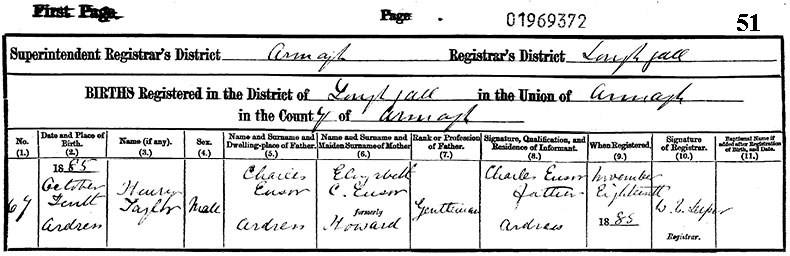 First Page.
Page
01969372
51
Superintendent Registrar's District Armagh Registrar's District Loughgall
BIRTHS Registered in the District of Loughgall in the Union of Armagh
in the County of Armagh
No. (1.)
Date and Place of Birth. (2.)
Name (if any). (3.)
Sex. (4.)
Name and Surname and Dwelling-place of Father. (5.)
Name and Surname and Maiden Surname of Mother (6.)
Rank or Profession of Father. (7.)
Signature, Qualification, and Residence of Informant. (8.)
When Registered. (9.)
Signature of Registrar. (10.)
Baptismal Name if added after Registration of Birth, and Date. (11.)
67
1885
October
Tenth
Ardress
Henry
Taylor
Male
Charles
Ensor
Ardress
Elizabeth
C. Ensor
formerly
Howard
Gentleman
Charles Ensor
father
Ardress
November
Eighteenth
1885
Registrar.